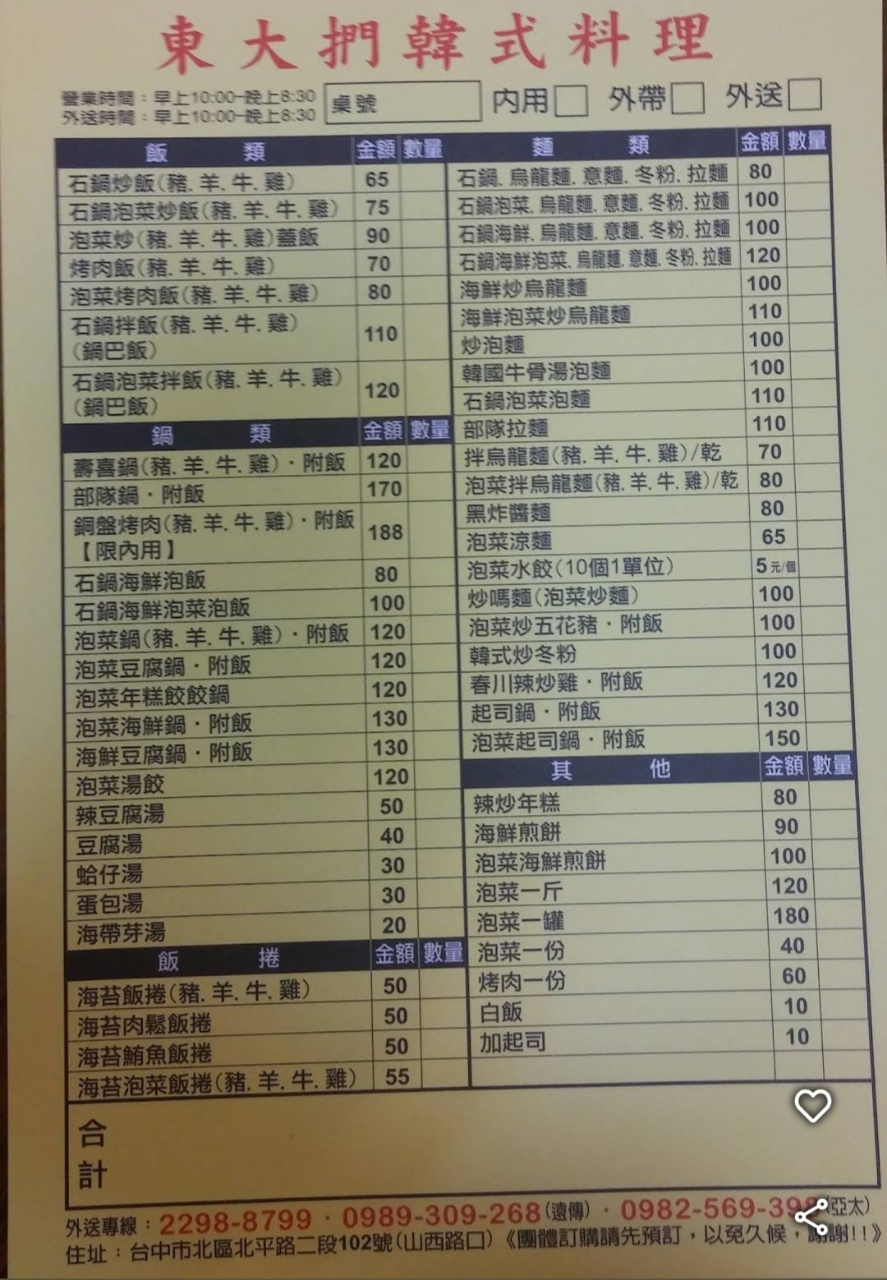 東大捫韓式料理
營業時間：早上10:00-晚上8:30
外送時間：早上10:00-晚上8:30
桌號
內用□ 外帶□ 外送□
飯類 金額 數量
石鍋炒飯(豬.羊.牛.雞) 65
石鍋泡菜炒飯(豬.羊.牛.雞) 75
泡菜炒(豬.羊.牛.雞)蓋飯 90
烤肉飯(豬.羊.牛.雞) 70
泡菜烤肉飯(豬.羊.牛.雞) 80
石鍋拌飯(豬.羊.牛.雞)
(鍋巴飯) 110
石鍋泡菜拌飯(豬.羊.牛.雞)
(鍋巴飯) 120
鍋類 金額 數量
壽喜鍋(豬.羊.牛.雞)・附飯 120
部隊鍋・附飯 170
銅盤烤肉(豬.羊.牛.雞)・附飯
【限內用】 188
石鍋海鮮泡飯 80
石鍋海鮮泡菜泡飯 100
泡菜鍋(豬.羊.牛.雞)・附飯 120
泡菜豆腐鍋・附飯 120
泡菜年糕餃餃鍋 120
泡菜海鮮鍋・附飯 130
海鮮豆腐鍋・附飯 130
泡菜湯餃 120
辣豆腐湯 50
豆腐湯 40
蛤仔湯 30
蛋包湯 30
海帶芽湯 20
飯捲 金額 數量
海苔飯捲(豬.羊.牛.雞) 50
海苔肉鬆飯捲 50
海苔鮪魚飯捲 50
海苔泡菜飯捲(豬.羊.牛.雞) 55
麵類 金額 數量
石鍋.烏龍麵.意麵.冬粉.拉麵 80
石鍋泡菜.烏龍麵.意麵.冬粉.拉麵 100
石鍋海鮮.烏龍麵.意麵.冬粉.拉麵 100
石鍋海鮮泡菜.烏龍麵.意麵.冬粉.拉麵 120
海鮮炒烏龍麵 100
海鮮泡菜炒烏龍麵 110
炒泡麵 100
韓國牛骨湯泡麵 100
石鍋泡菜泡麵 110
部隊拉麵 110
拌烏龍麵(豬.羊.牛.雞)/乾 70
泡菜拌烏龍麵(豬.羊.牛.雞)/乾 80
黑炸醬麵 80
泡菜涼麵 65
泡菜水餃(10個1單位) 5元/個
炒嗎麵(泡菜炒麵) 100
泡菜炒五花豬・附飯 100
韓式炒冬粉 100
春川辣炒雞・附飯 120
起司鍋・附飯 130
泡菜起司鍋・附飯 150
其他 金額 數量
辣炒年糕 80
海鮮煎餅 90
泡菜海鮮煎餅 100
泡菜一斤 120
泡菜一罐 180
泡菜一份 40
烤肉一份 60
白飯 10
加起司 10
合計
外送專線：2298-8799・0989-309-268(遠傳)・0982-569-39 (亞太)
住址：台中市北區北平路二段102號(山西路口)《團體訂購請先預訂，以免久候，謝謝!!》